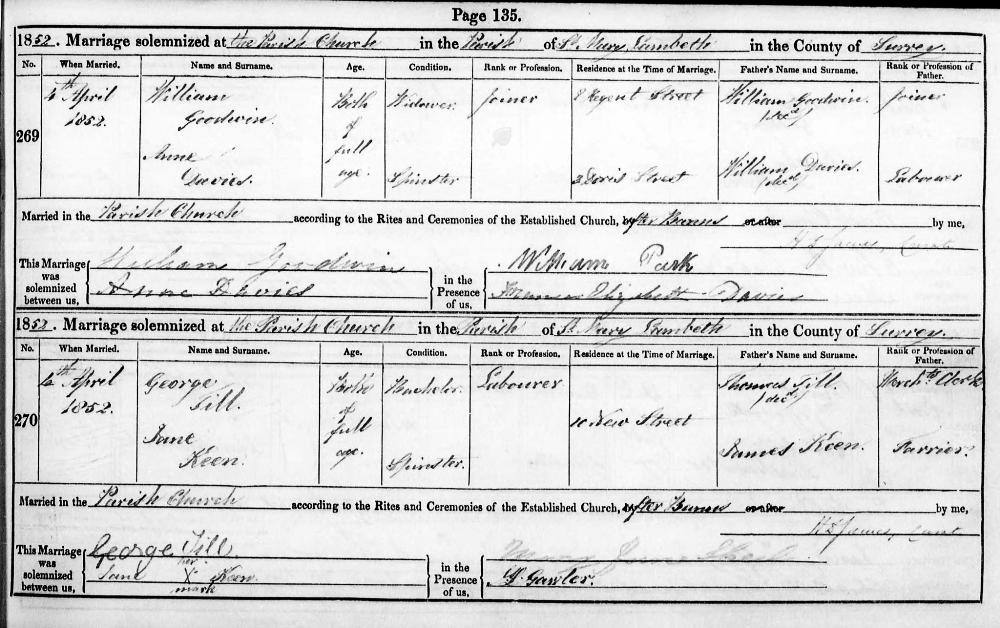 Page 135.
1852. Marriage solemnized at the Parish Church in the Parish of St Mary Lambeth in the County of Surrey.
No. When Married. Name and Surname. Age. Condition. Rank or Profession. Residence at the Time of Marriage. Father's Name and Surname. Rank or Profession of Father.
269 April William Both Widower Joiner 8 Regent Street William Goodwin. Joiner
1852. Goodwin. of (decd)
Anne full William Davies.
Davies. age. Spinster 3 Doris Street (decd) Labourer
Married in the Parish Church according to the Rites and Ceremonies of the Established Church, by after Banns or after by me,
H S James, Curate
This Marriage was solemnized between us, William Goodwin in the Presence of us, William Park
Anne Davies Elizabeth Davies
1852. Marriage solemnized at the Parish Church in the Parish of St Mary Lambeth in the County of Surrey.
No. When Married. Name and Surname. Age. Condition. Rank or Profession. Residence at the Time of Marriage. Father's Name and Surname. Rank or Profession of Father.
270 April George Both Bachelor Labourer Thomas Till. Clerk
1852. Till. of (decd)
Jane full 10 New Street James Keen. Farrier.
Keen. age. Spinster.
Married in the Parish Church according to the Rites and Ceremonies of the Established Church, by after Banns or after by me,
H S James, Curate
This Marriage was solemnized between us, George Till in the Presence of us, Jane
Jane her X mark Keen. Gawler.